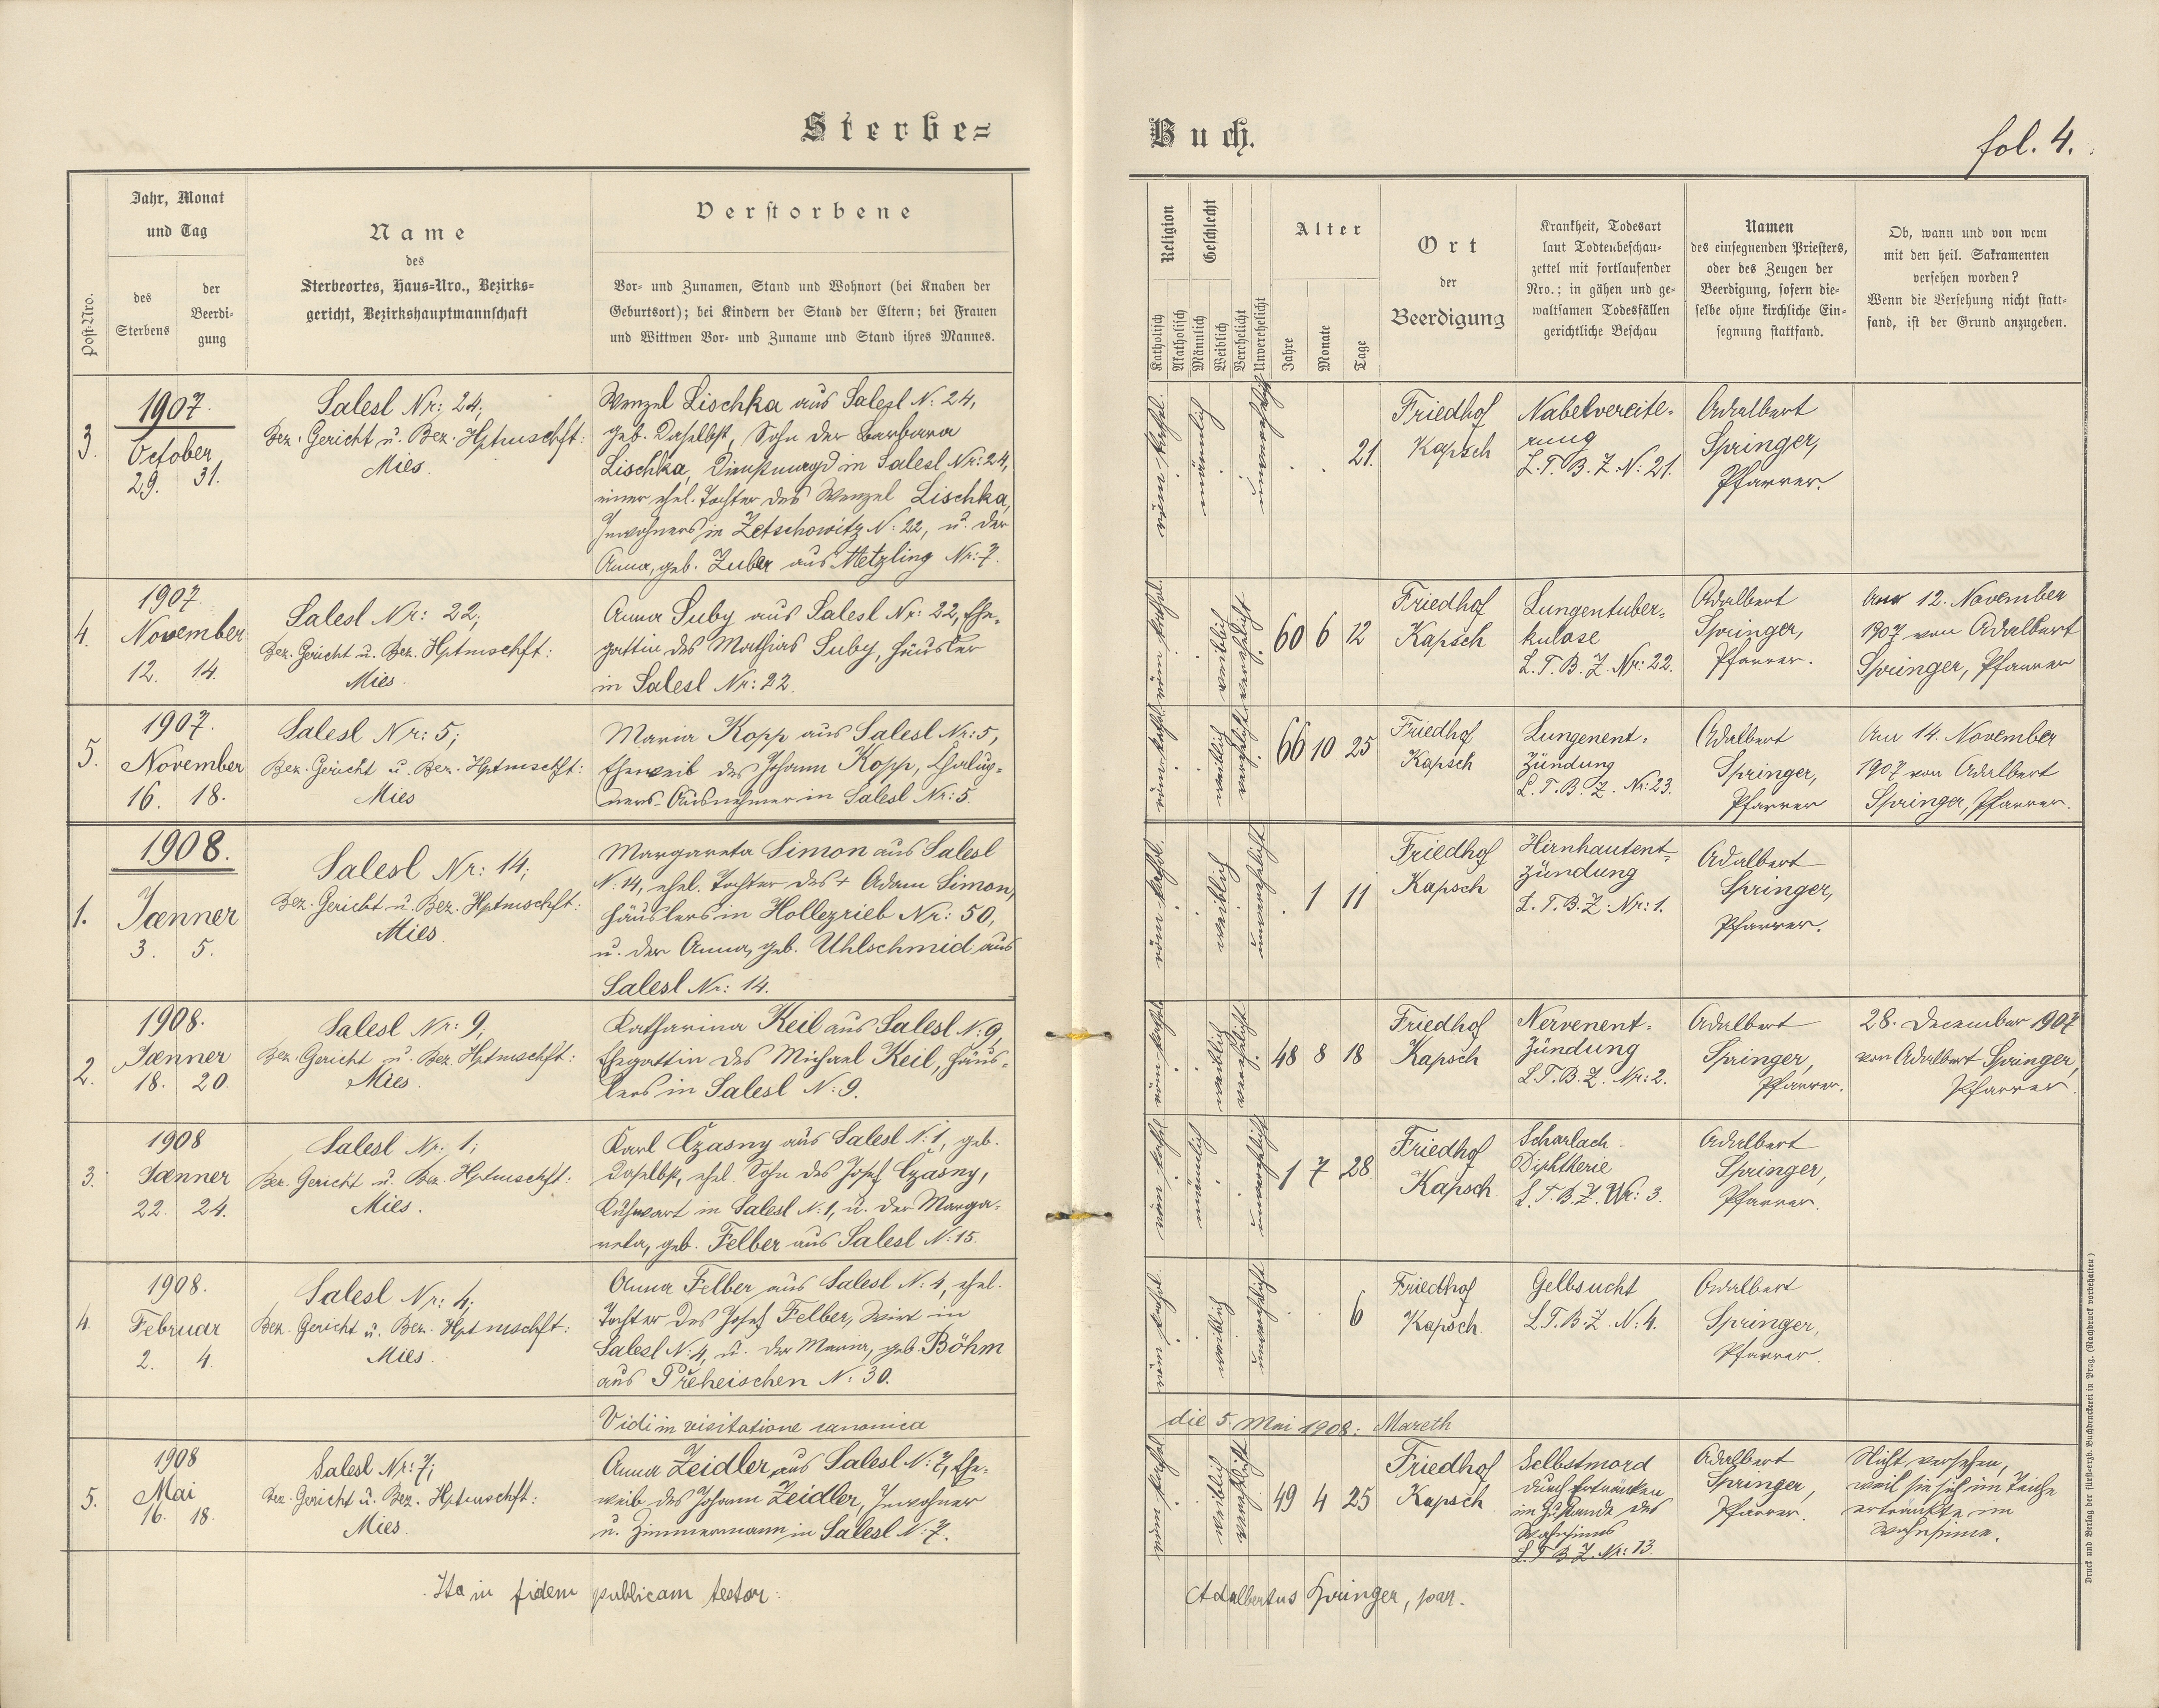 Sterbe=
Buch.
fol. 4.
Post-Nro.
Jahr, Monat
und Tag
des
Sterbens
der
Beerdi-
gung
Name
des
Sterbeortes, Haus-Nro., Bezirks-
gericht, Bezirkshauptmannschaft
Verstorbene
Vor- und Zunamen, Stand und Wohnort (bei Knaben der
Geburtsort); bei Kindern der Stand der Eltern; bei Frauen
und Wittwen Vor- und Zuname und Stand ihres Mannes.
Religion
Katholisch
Akatholisch
Geschlecht
Männlich
Weiblich
Verehelicht
Unverehelicht
Alter
Jahre
Monate
Tage
Ort
der
Beerdigung
Krankheit, Todesart
laut Todtenbeschau-
zettel mit fortlaufender
Nro.; in gähen und ge-
waltsamen Todesfällen
gerichtliche Beschau
Namen
des einsegnenden Priesters,
oder des Zeugen der
Beerdigung, sofern die-
selbe ohne kirchliche Ein-
segnung stattfand.
Ob, wann und von wem
mit den heil. Sakramenten
versehen worden?
Wenn die Versehung nicht statt-
fand, ist der Grund anzugeben.
3.
1907.
October
29. 31.
Salesl Nr: 24;
Bez. Gericht u. Bez. Hptmschft:
Mies.
Wenzel Lischka aus Salesl N: 24,
geb. daselbst, Sohn der Barbara
Lischka, Dienstmagd in Salesl Nr: 24,
einer ehel. Tochter des Wenzel Lischka,
Inwohners in Zetschowitz N: 22, u. der
Anna, geb. Zuber aus Metzling Nr: 7.
röm. kathol.
männlich
unverehelicht
21.
Friedhof
Kapsch
Nabelvereite-
rung
L. T. B. Z. N: 21.
Adalbert
Springer,
Pfarrer.
4.
1907.
November
12. 14.
Salesl Nr: 22;
Bez. Gericht u. Bez. Hptmschft:
Mies.
Anna Suby aus Salesl Nr: 22, Ehe-
gattin des Mathias Suby, Häusler
in Salesl Nr: 22.
röm. kathol.
weiblich
verehelicht
60 6 12
Friedhof
Kapsch
Lungentuber-
kulose
L. T. B. Z. Nr: 22.
Adalbert
Springer,
Pfarrer.
Am 12. November
1907 von Adalbert
Springer, Pfarrer
5.
1907.
November
16. 18.
Salesl Nr: 5;
Bez. Gericht u. Bez. Hptmschft:
Mies
Maria Kopp aus Salesl Nr: 5,
Eheweib des Johann Kopp, Chalup-
ners-Ausnehmer in Salesl Nr: 5.
röm. kathol.
weiblich
verehelicht
66 10 25
Friedhof
Kapsch
Lungenent-
zündung
L. T. B. Z. Nr: 23.
Adalbert
Springer,
Pfarrer
Am 14. November
1907 von Adalbert
Springer, Pfarrer.
1.
1908.
Jænner
3. 5.
Salesl Nr: 14;
Bez. Gericht u. Bez. Hptmschft:
Mies.
Margareta Simon aus Salesl
N: 14, ehel. Tochter des + Adam Simon,
Häuslers in Hollezrieb Nr: 50,
u. der Anna, geb. Uhlschmid aus
Salesl Nr: 14.
röm. kathol.
weiblich
unverehelicht
1 11
Friedhof
Kapsch
Hirnhautent-
zündung
L. T. B. Z. Nr: 1.
Adalbert
Springer,
Pfarrer.
2.
1908.
Jænner
18. 20.
Salesl Nr: 9;
Bez. Gericht u. Bez. Hptmschft:
Mies.
Katharina Keil aus Salesl N: 9,
Ehegattin des Michael Keil, Häus-
lers in Salesl N: 9.
röm. kathol.
weiblich
verehelicht
48 8 18
Friedhof
Kapsch
Nervenent-
zündung
L. T. B. Z. Nr: 2.
Adalbert
Springer,
Pfarrer.
28. December 1907
von Adalbert Springer,
Pfarrer.
3.
1908
Jænner
22. 24.
Salesl Nr: 1;
Bez. Gericht u. Bez. Hptmschft:
Mies.
Karl Czasny aus Salesl N: 1, geb.
daselbst, ehel. Sohn des Josef Czasny,
in Salesl N: 1, u. der Marga-
reta, geb. Felber aus Salesl N: 15.
röm. kathol.
männlich
unverehelicht
1 7 28
Friedhof
Kapsch
Scharlach-
Diphtherie
L. T. B. Z. Nr: 3.
Adalbert
Springer,
Pfarrer.
4.
1908.
Februar
2. 4.
Salesl Nr: 4;
Bez. Gericht u. Bez. Hptmschft:
Mies.
Anna Felber aus Salesl N: 4, ehel.
Tochter des Josef Felber, Wirt in
Salesl N: 4, u. der Maria, geb. Böhm
aus Preheischen N: 30.
röm. kathol.
weiblich
unverehelicht
6
Friedhof
Kapsch.
Gelbsucht
L. T. B. Z. N: 4.
Adalbert
Springer,
Pfarrer.
Vidi in visitatione canonica
die 5. Mai 1908: Mareth
5.
1908
Mai
16. 18.
Salesl Nr: 7;
Bez. Gericht u. Bez. Hptmschft:
Mies.
Anna Zeidler aus Salesl N: 7, Ehe-
weib des Johann Zeidler, Inwohner
u. Zimmermann in Salesl N: 7.
röm. kathol.
weiblich
verehelicht
49 4 25
Friedhof
Kapsch.
Selbstmord
durch Ertränken
im Zustande des
Wahnsinns
L. T. B. Z. Nr: 13.
Adalbert
Springer,
Pfarrer.
Nicht versehen,
weil sie sich im Teiche
ertränkte im
Wahnsinne.
Ita in fidem publicam testor:
Adalbertus Springer, par.
Druck und Verlag der fürst-erzb. Buchdruckerei in Prag. (Nachdruck vorbehalten)